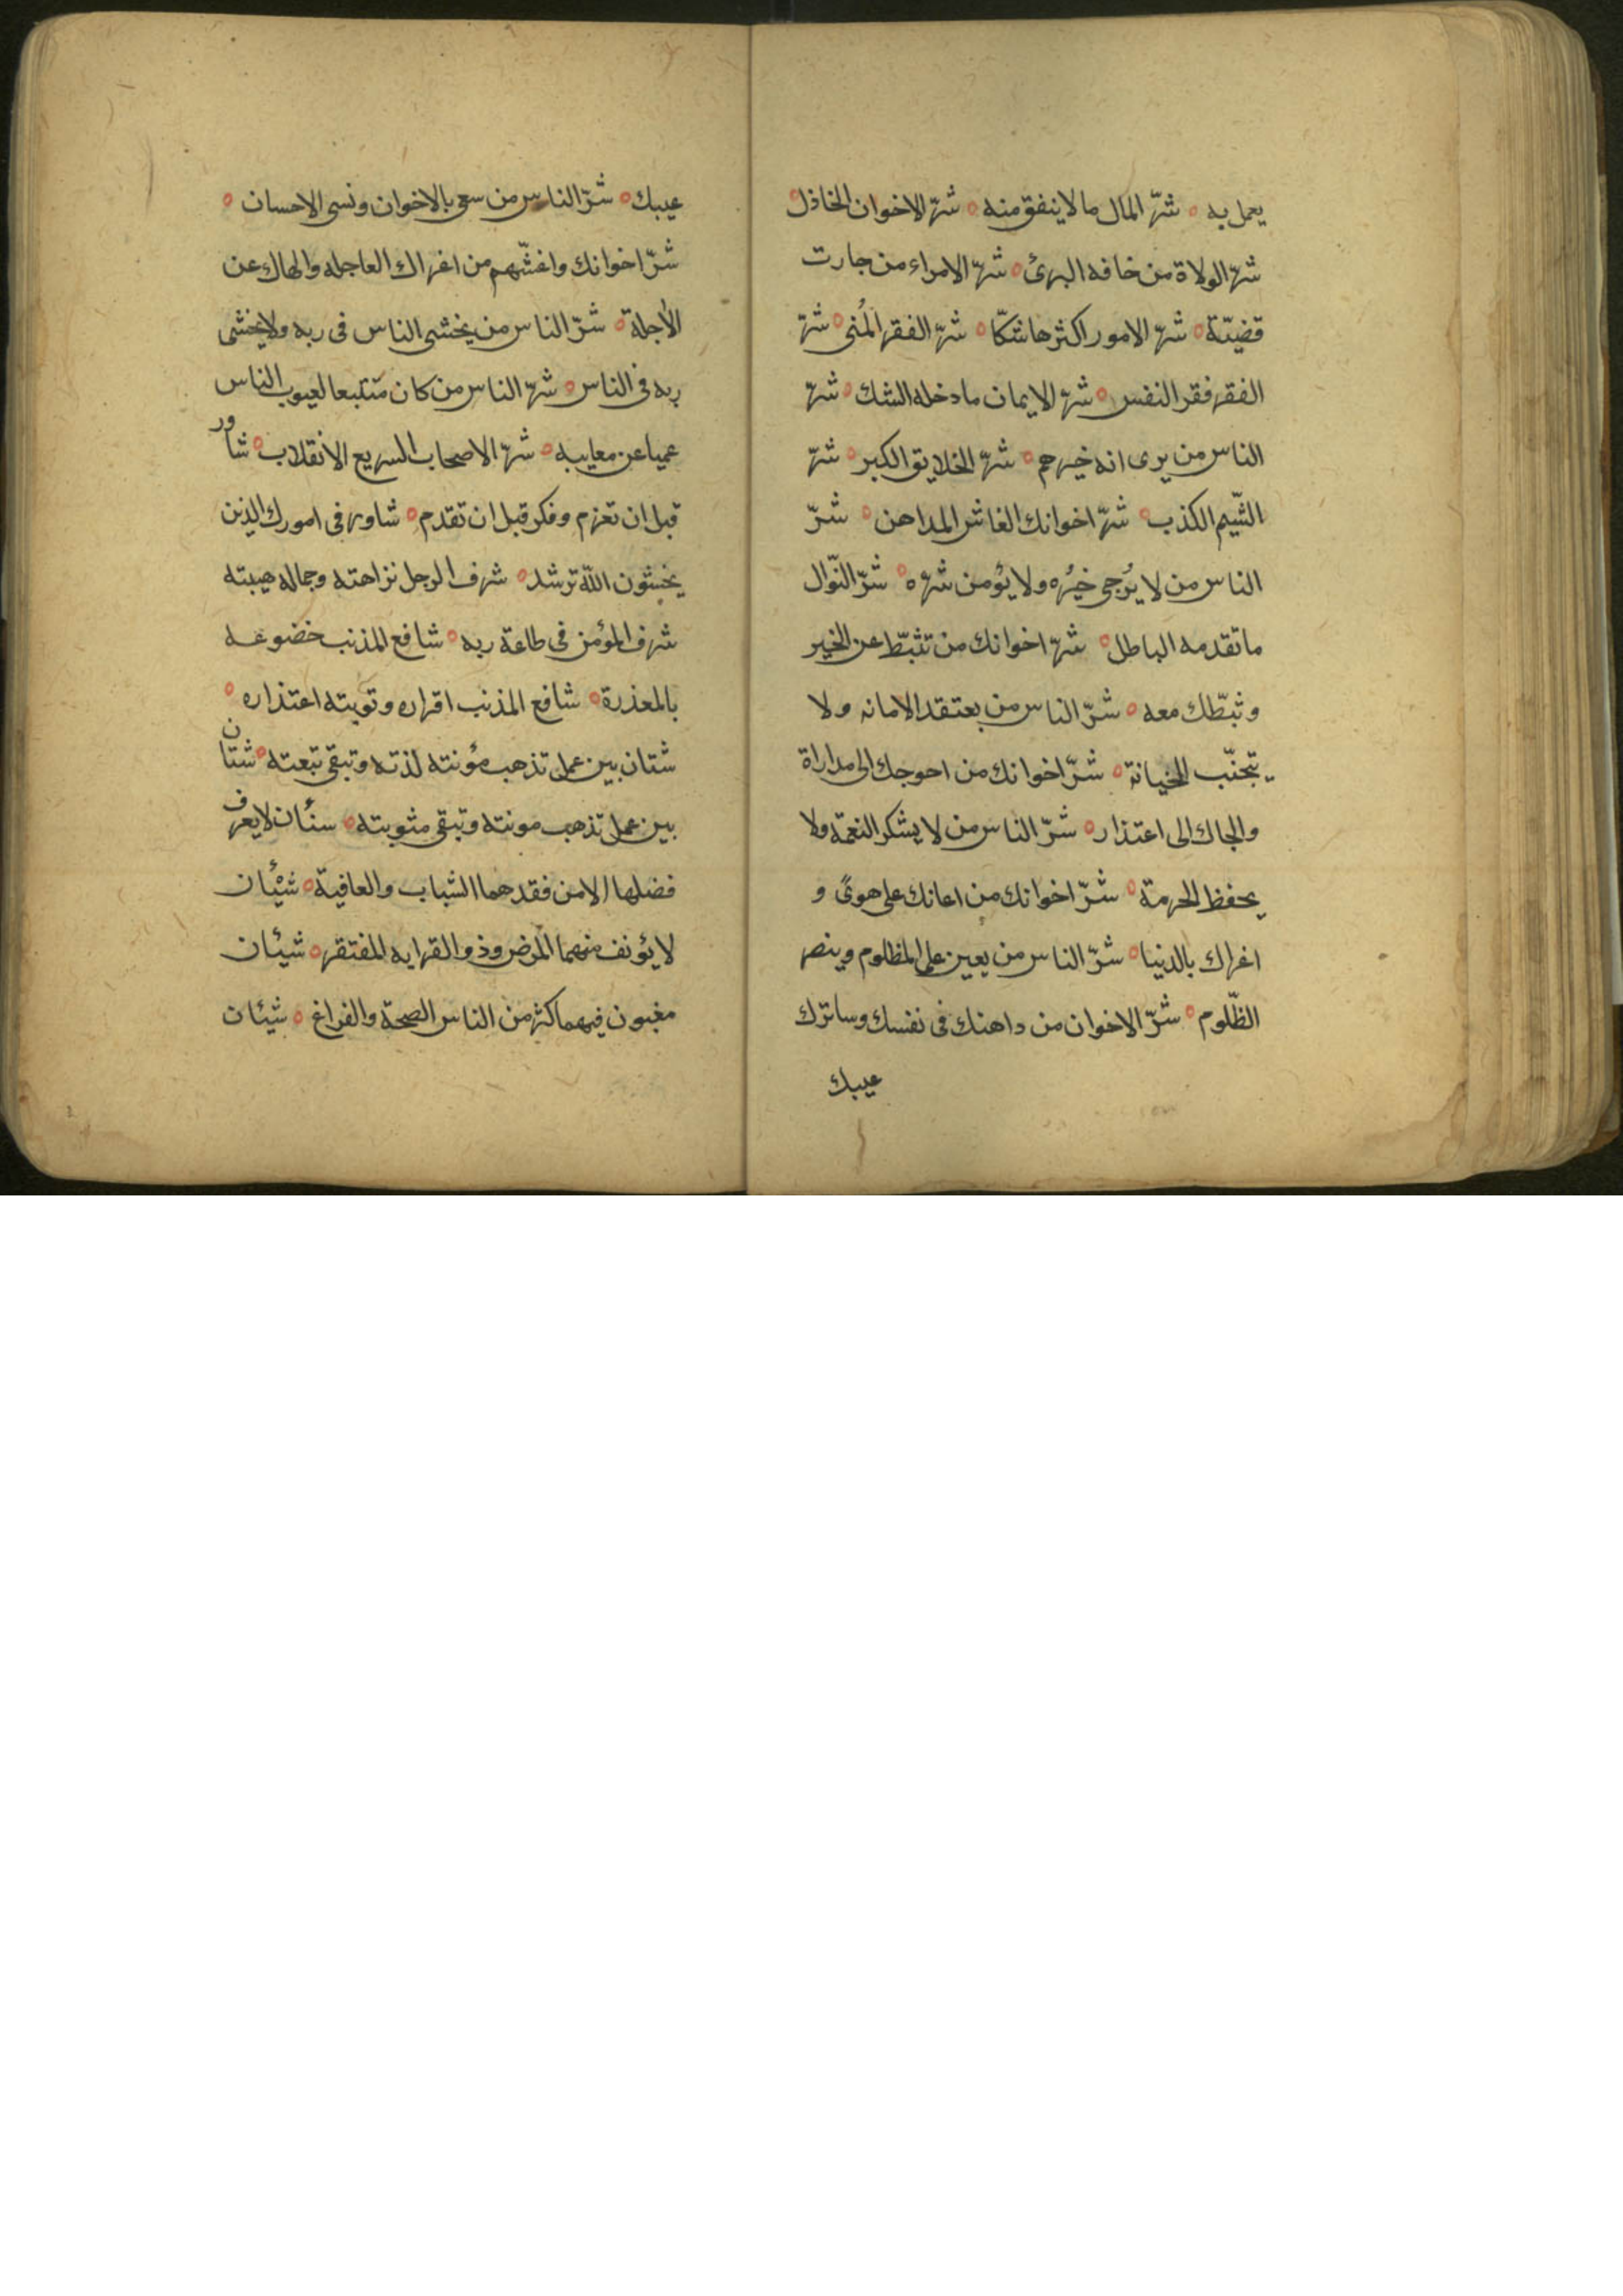 يعمل به ه شرّ المال ما لا ينفق منه ه شرّ الاخوان الخاذل ه
شرّ الولاة من خافه البرئ ه شرّ الامراء من جارت
قضيّة ه شرّ الامور اكثرها شكّا ه شرّ الفقر المُنى ه شرّ
الفقر فقر النفس ه شرّ الايمان ما دخله الشك ه شرّ
الناس من يرى انه خيرهم ه شرّ الخلايق الكبر ه شرّ
الشّيم الكذب ه شرّ اخوانك الغاش المداهن ه شرّ
الناس من لا يُرجى خيرُه ولا يؤمن شرّه ه شرّ النّوال
ما تقدمه الباطل ه شرّ اخوانك من تثبّط عن الخير
وثبّطك معه ه شرّ الناس من يعتقد الامانه ولا
يتجنّب الخيانة ه شرّ اخوانك من احوجك الى مداراة
والجاك الى اعتذار ه شرّ الناس من لا يشكر النعمة ولا
يحفظ الحرمة ه شرّ اخوانك من اعانك على هوىً و
اغراك بالدنيا ه شرّ الناس من يعين على المظلوم وينصر
الظّلوم ه شرّ الاخوان من داهنك فى نفسك وساترك
عيبك
عيبك ه شرّ الناس من سعى بالاخوان ونسى الاحسان ه
شرّ اخوانك واغشّهم من اغراك العاجله والهاك عن
الأجلة ه شرّ الناس من يخشى الناس فى ربه ولا يخشى
ربه فى الناس ه شرّ الناس من كان متتبعا لعيوب الناس
عميا عن معايبه ه شرّ الاصحاب السريع الانقلاب ه شاور
قبل ان تعزم وفكر قبل ان تقدم ه شاور فى امورك الذين
يخشون اللّه ترشد ه شرف الرجل نزاهته وجماله هيبته
شرف المؤمن فى طاعة ربه ه شافع المذنب خضوعه
بالمعذرة ه شافع المذنب اقراره وتوبته اعتذاره ه
شتان بين عمل تذهب مؤنته لذته وتبقى تبعته ه شتان
بين عمل تذهب مونته وتبقى مثوبته ه سئان لا يعرف
فضلها الا من فقدهما الشباب والعافية ه شيْئان
لا يؤنف منهما المرض وذو القرابه المفتقر ه شيئان
مغبون فيهما كثر من الناس الصحة والفراغ ه شيئان